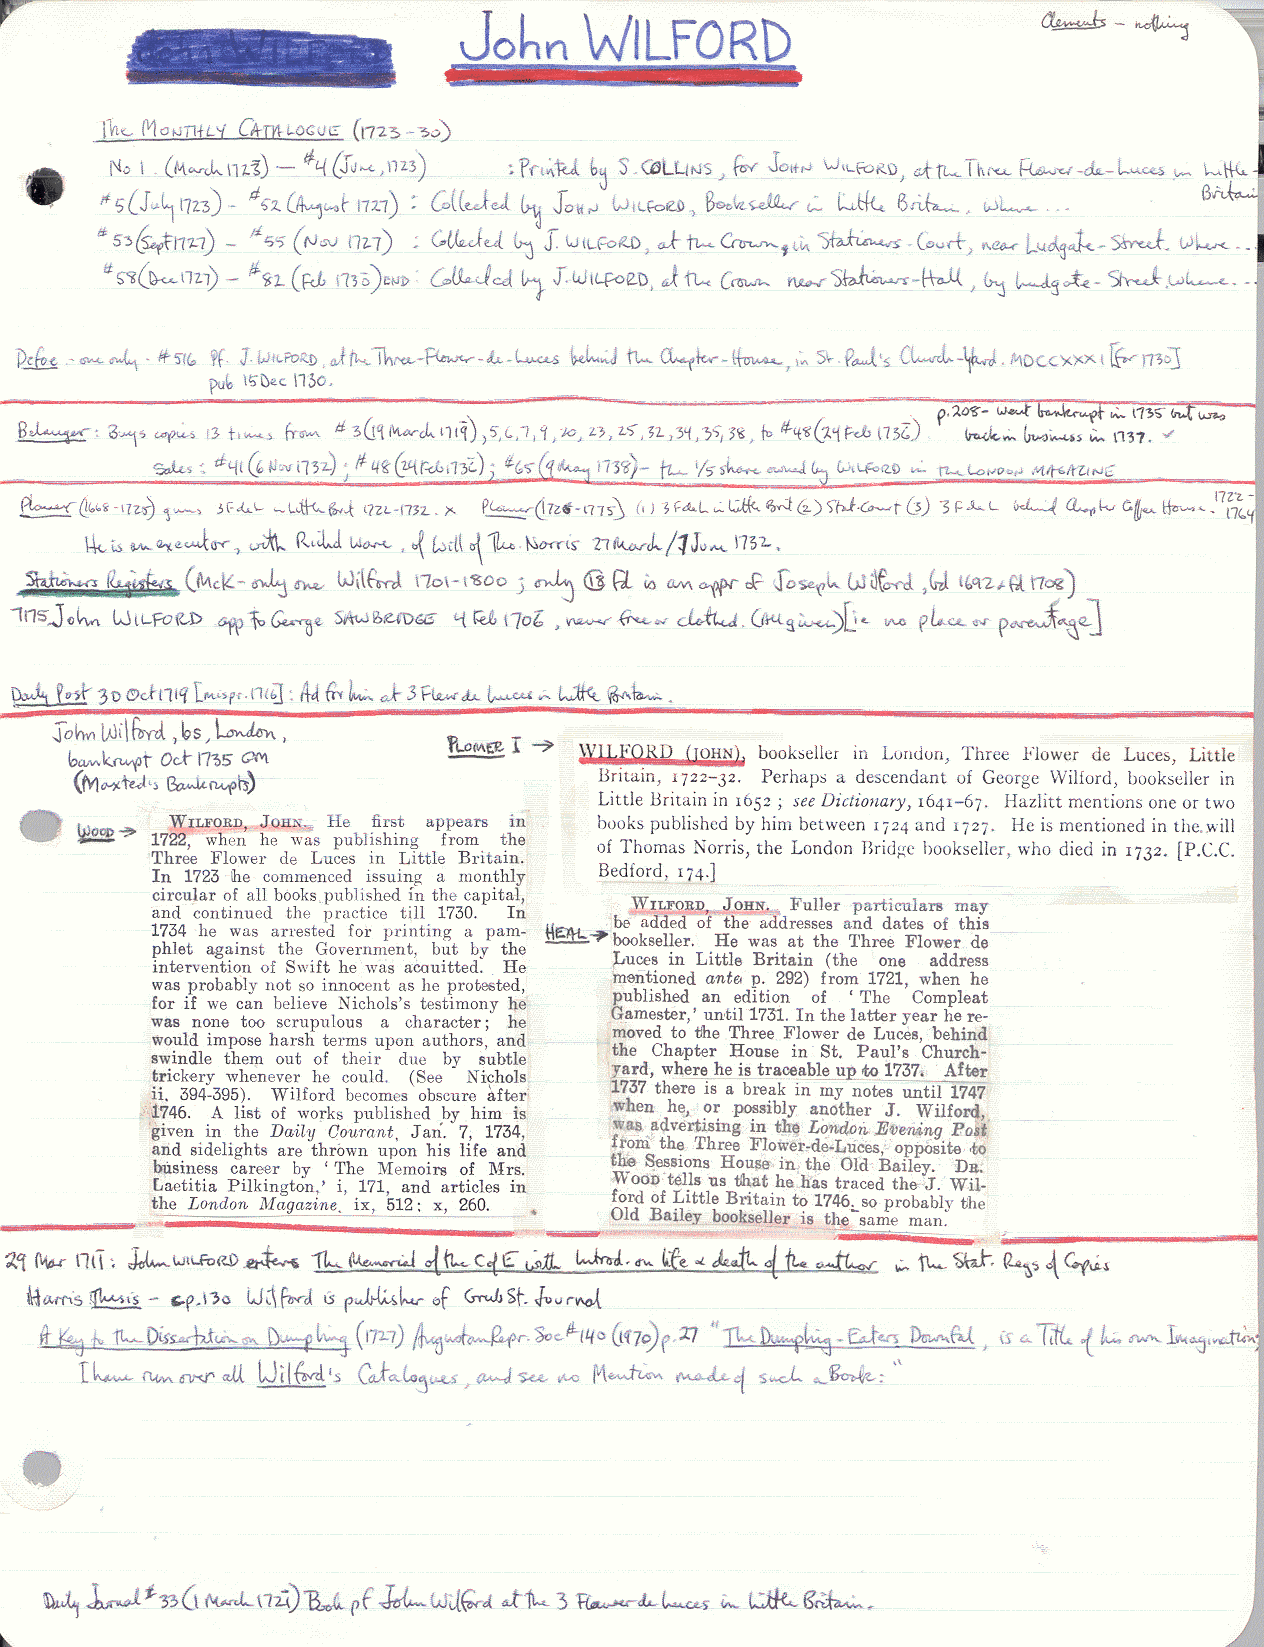 John WILFORD
Clements - nothing
The MONTHLY CATALOGUE (1723-30)
No 1. (March 1723) — #4 (June, 1723) : Printed by S. COLLINS, for JOHN WILFORD, at the Three Flower-de-Luces in Little-
Britain
#5 (July 1723) - #52 (August 1727) : Collected by JOHN WILFORD, Bookseller in Little Britain, where ...
#53 (Sept 1727) - #55 (Nov 1727) : Collected by J. WILFORD, at the Crown, in Stationers-Court, near Ludgate-Street. Where...
#58 (Dec 1727) - #82 (Feb 1730) END : Collected by J. WILFORD, at the Crown near Stationers-Hall, by Ludgate-Street, where...
Defoe - one only - #516 Pf. J. WILFORD, at the Three-Flower-de-Luces behind the Chapter-House, in St. Paul's Church-Yard. MDCCXXXI [for 1730]
pub 15 Dec 1730.
p.208 - went bankrupt in 1735 but was
back in business in 1737. ✓
Belanger : Buys copies 13 times from #3 (19 March 1719), 5, 6, 7, 9, 20, 23, 25, 32, 34, 35, 38, to #48 (24 Feb 1736)
Sales : #41 (6 Nov 1732) ; #48 (24 Feb 1736) ; #65 (9 May 1738) - the 1/5 share owned by WILFORD in the LONDON MAGAZINE
Plomer (1668-1725) gives 3 F de L in Little Brit 1722-1732. x Plomer (1726-1775) (1) 3 F de L in Little Brit (2) Stat. Court (3) 3 F de L behind Chapter Coffee House. 1722-
1764
He is an executor, with Richd Ware, of Will of Tho. Norris 27 March / 7 June 1732.
Stationers Registers (McK - only one Wilford 1701-1800 ; only 13 fd is an appr of Joseph Wilford, bd 1692 & fd 1708)
7175 John WILFORD app to George SAWBRIDGE 4 Feb 1706, never free or clothed. (All given) [ie no place or parentage]
Daily Post 30 Oct 1719 [mispr. 1716] : Ad for him at 3 Fleur de Luces in Little Britain.
John Wilford, bs, London,
bankrupt Oct 1735 GM
(Maxted's Bankrupts)
PLOMER I →
WILFORD (JOHN), bookseller in London, Three Flower de Luces, Little
Britain, 1722-32. Perhaps a descendant of George Wilford, bookseller in
Little Britain in 1652 ; see Dictionary, 1641-67. Hazlitt mentions one or two
books published by him between 1724 and 1727. He is mentioned in the will
of Thomas Norris, the London Bridge bookseller, who died in 1732. [P.C.C.
Bedford, 174.]
WOOD →
WILFORD, JOHN. He first appears in
1722, when he was publishing from the
Three Flower de Luces in Little Britain.
In 1723 he commenced issuing a monthly
circular of all books published in the capital,
and continued the practice till 1730. In
1734 he was arrested for printing a pam-
phlet against the Government, but by the
intervention of Swift he was acquitted. He
was probably not so innocent as he protested,
for if we can believe Nichols's testimony he
was none too scrupulous a character; he
would impose harsh terms upon authors, and
swindle them out of their due by subtle
trickery whenever he could. (See Nichols
ii, 394-395). Wilford becomes obscure after
1746. A list of works published by him is
given in the Daily Courant, Jan. 7, 1734,
and sidelights are thrown upon his life and
business career by 'The Memoirs of Mrs.
Laetitia Pilkington,' i, 171, and articles in
the London Magazine, ix, 512; x, 260.
HEAL →
WILFORD, JOHN. Fuller particulars may
be added of the addresses and dates of this
bookseller. He was at the Three Flower de
Luces in Little Britain (the one address
mentioned ante p. 292) from 1721, when he
published an edition of 'The Compleat
Gamester,' until 1731. In the latter year he re-
moved to the Three Flower de Luces, behind
the Chapter House in St. Paul's Church-
yard, where he is traceable up to 1737. After
1737 there is a break in my notes until 1747
when he, or possibly another J. Wilford,
was advertising in the London Evening Post
from the Three Flower-de-Luces, opposite to
the Sessions House in the Old Bailey. DR.
WOOD tells us that he has traced the J. Wil-
ford of Little Britain to 1746. so probably the
Old Bailey bookseller is the same man.
29 Mar 1711 : John WILFORD enters The Memorial of the C of E with Introd. on life & death of the author in the Stat. Regs of Copies
Harris Thesis - cp. 130 Wilford is publisher of Grub St. Journal
A Key to the Dissertation on Dumpling (1727) Augustan Repr. Soc #140 (1970) p.27 "The Dumpling-Eaters Downfal, is a Title of his own Imagination;
I have run over all Wilford's Catalogues, and see no Mention made of such a Book:"
Daily Journal #33 (1 March 1721) Book pf John Wilford at the 3 Flower de Luces in Little Britain.